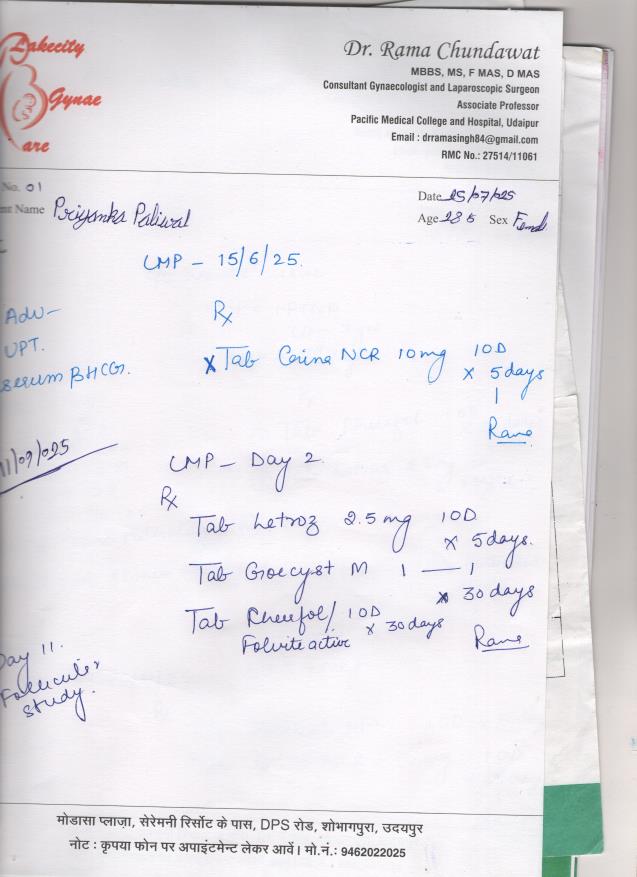 Lakecity
Gynae
Care
Dr. Rama Chundawat
MBBS, MS, F MAS, D MAS
Consultant Gynaecologist and Laparoscopic Surgeon
Associate Professor
Pacific Medical College and Hospital, Udaipur
Email : drramasingh84@gmail.com
RMC No.: 27514/11061
No. 01
Date 25/07/025
nt Name Priyanka Paliwal
Age 28 Sex Female
LMP - 15/6/25.
Adv-
UPT.
serum BHCG.
Rx
x Tab NCR 10mg 10D
x 5 days
1
Rama
11/09/025
LMP - Day 2
Rx
Tab Letroz 2.5 mg 10D
x 5 days.
Tab Groecyst M 1 — 1
x 30 days
Tab / 10D
Folvite active x 30 days
Rama
Day 11.
Follicular
study.
मोडासा प्लाज़ा, सेरेमनी रिर्सोट के पास, DPS रोड, शोभागपुरा, उदयपुर
नोट : कृपया फोन पर अपाइंटमेन्ट लेकर आवें। मो.नं.: 9462022025